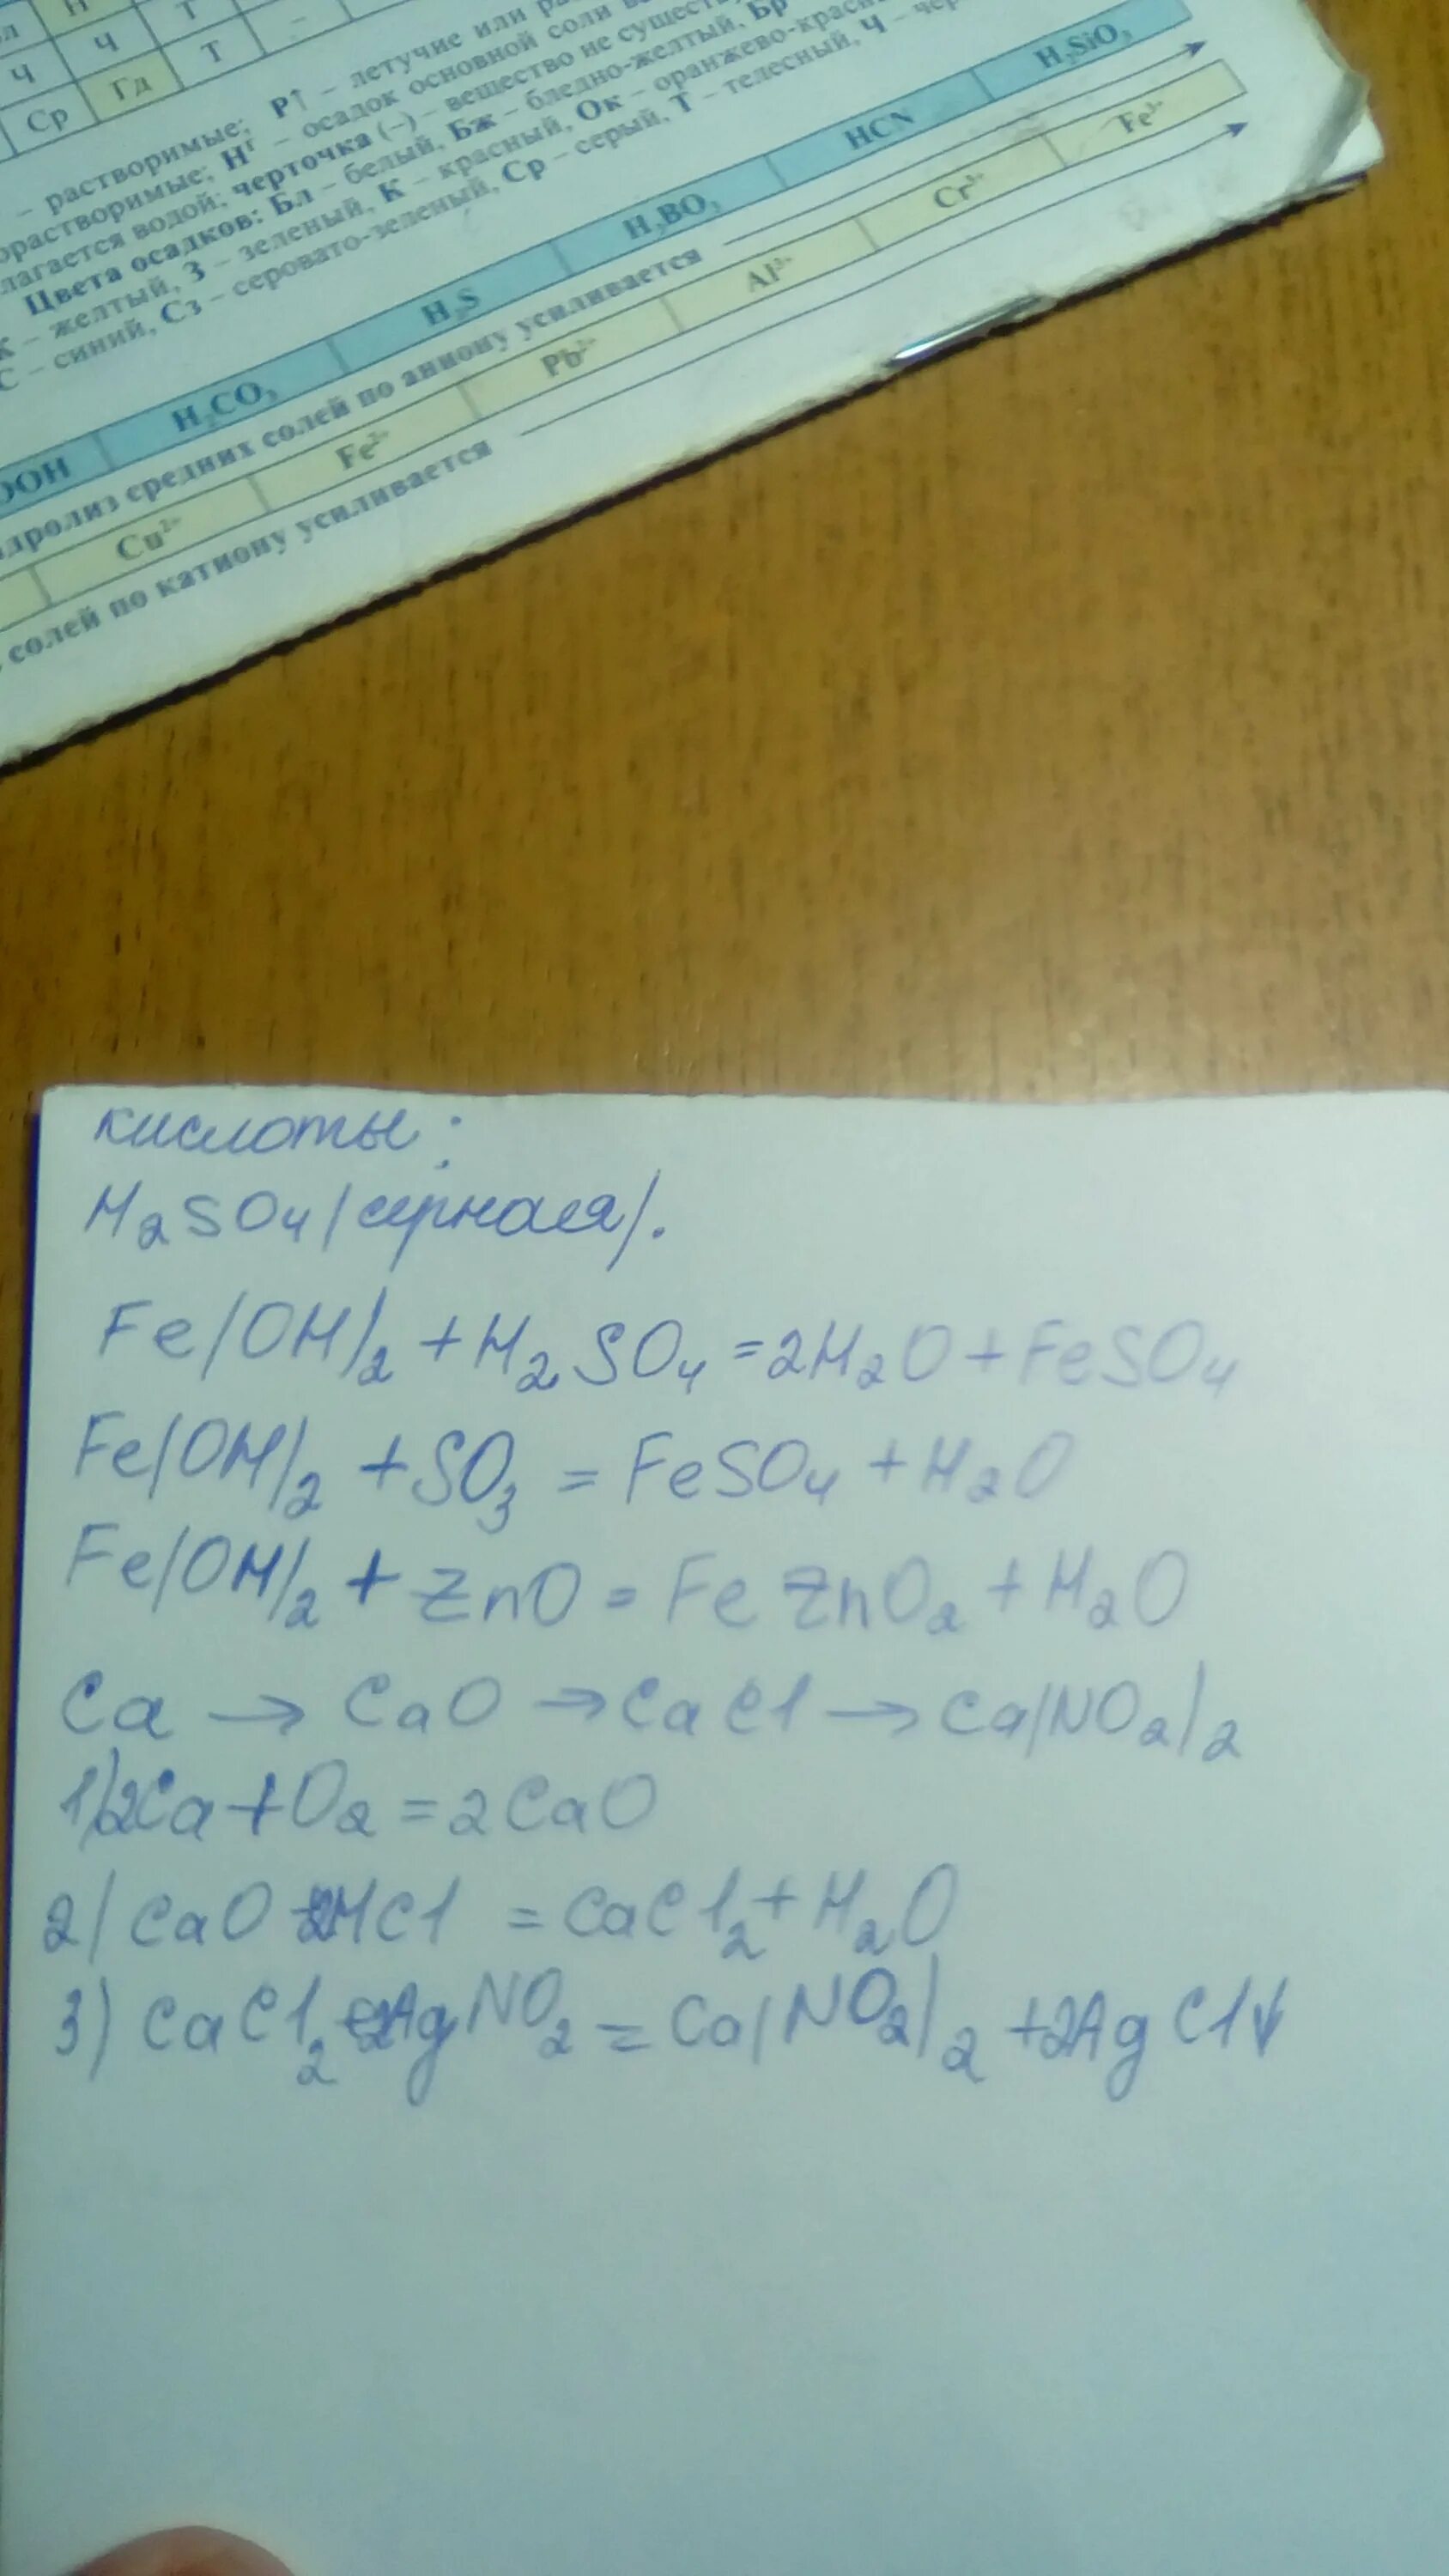 Ч Т –
Ср Гд Т
– растворимые; Р↑ – летучие или
растворимые; Нг – осадок основной соли
лагается водой; черточка (–) – вещество не существ
Цвета осадков: Бл – белый, Бж – бледно-желтый, Бр
– желтый, З – зеленый, К – красный, Ок – оранжево-красн
С – синий, Сз – серовато-зеленый, Ср – серый, Т – телесный, Ч – чер
OOH H₂CO₃ H₂S H₃BO₃ HCN H₂SiO₃
дролиз средних солей по аниону усиливается
Cu²⁺ Fe²⁺ Pb²⁺ Al³⁺ Cr³⁺ Fe³⁺
солей по катиону усиливается
кислоты:
H₂SO₄ (серная).
Fe(OH)₂ + H₂SO₄ = 2H₂O + FeSO₄
Fe(OH)₂ + SO₃ = FeSO₄ + H₂O
Fe(OH)₂ + ZnO = FeZnO₂ + H₂O
Ca → CaO → CaCl → Ca(NO₂)₂
1) 2Ca + O₂ = 2CaO
2) CaO + 2HCl = CaCl₂ + H₂O
3) CaCl₂ + 2AgNO₂ = Ca(NO₂)₂ + 2AgCl↓